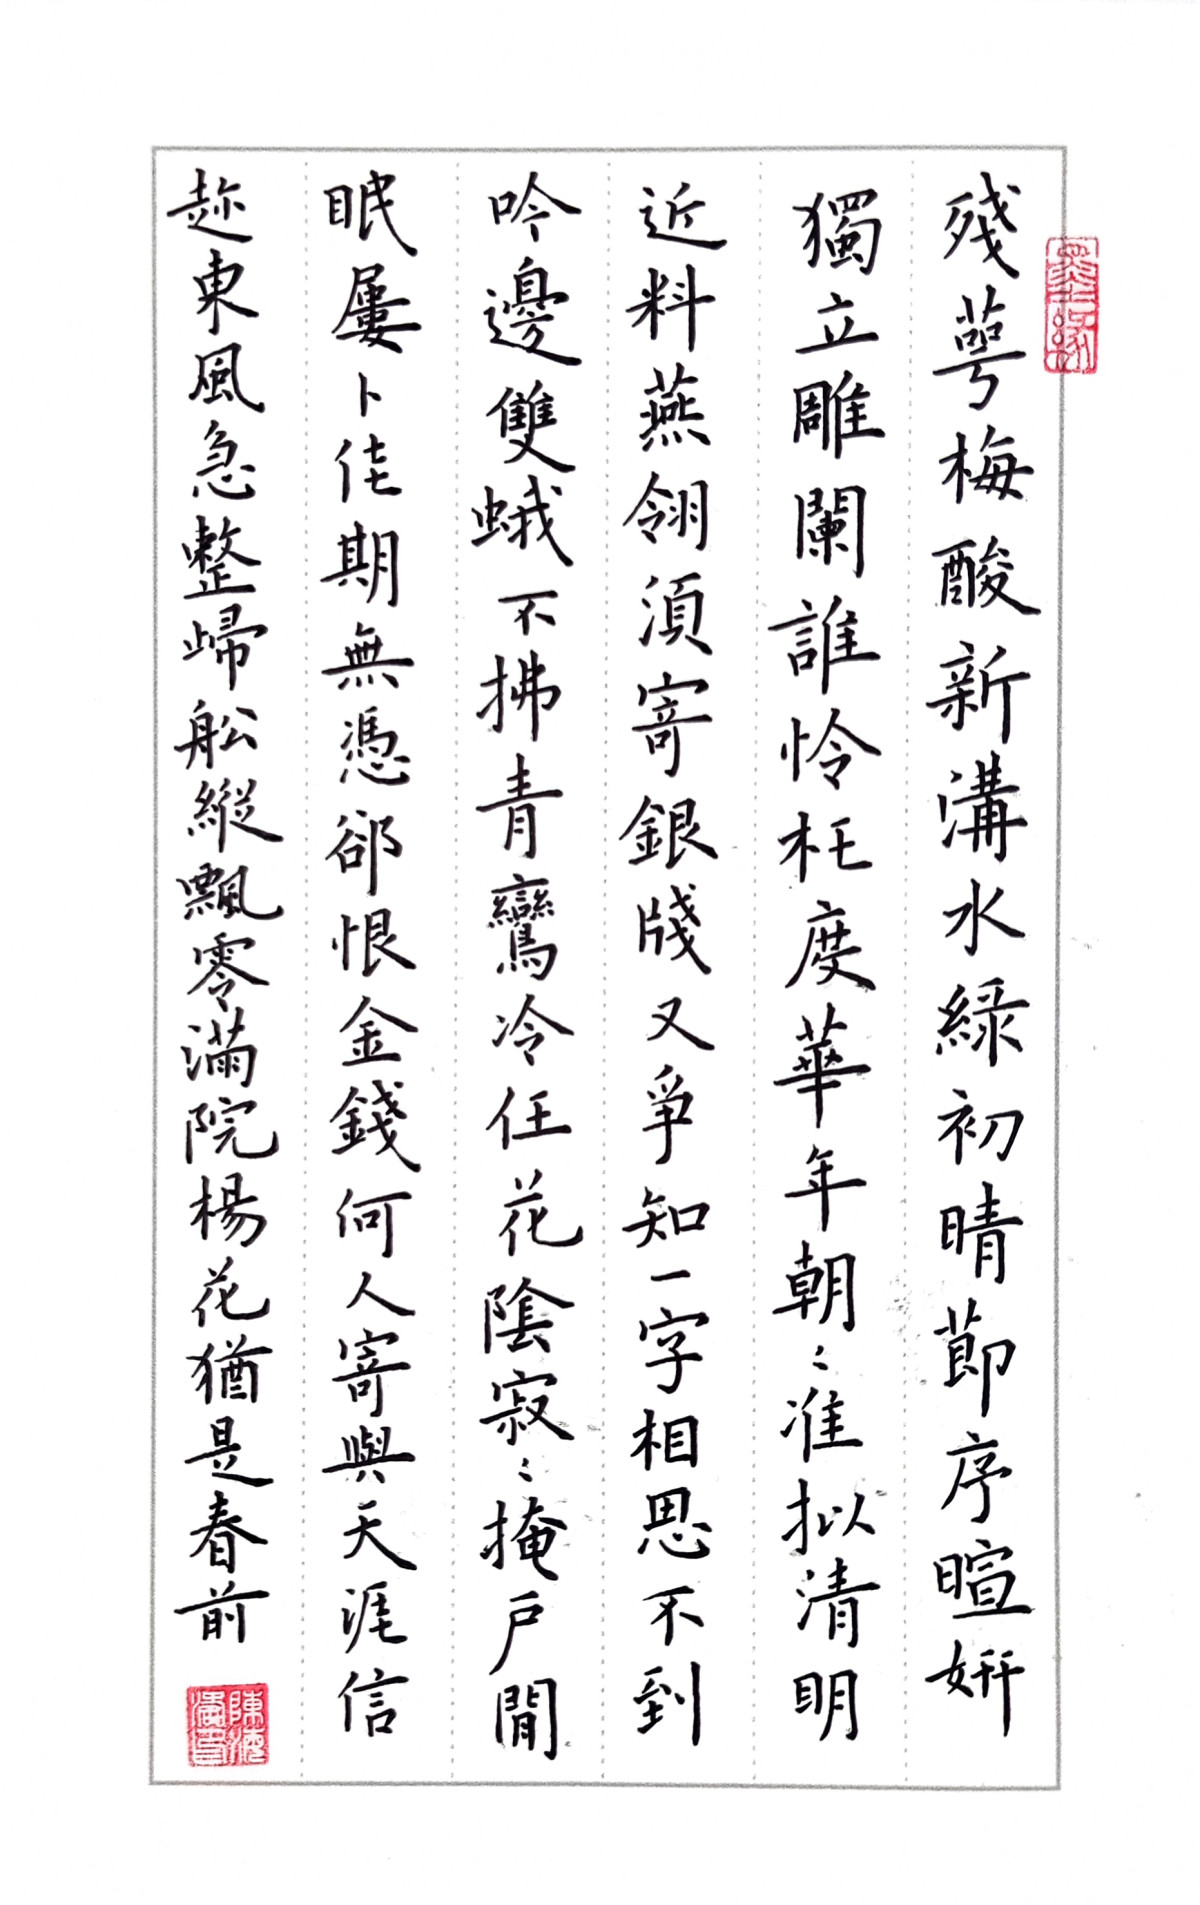 殘萼梅酸新溝水綠初晴節序暄妍
獨立雕闌誰怜枉度華年朝〻准拟清明
近料燕翎須寄銀牋又爭知一字相思不到
吟邊雙蛾不拂青鸞冷任花陰寂〻掩戶閒
眠屢卜佳期無憑郤恨金錢何人寄與天涯信
趂東風急整歸舩縱飄零滿院楊花猶是春前